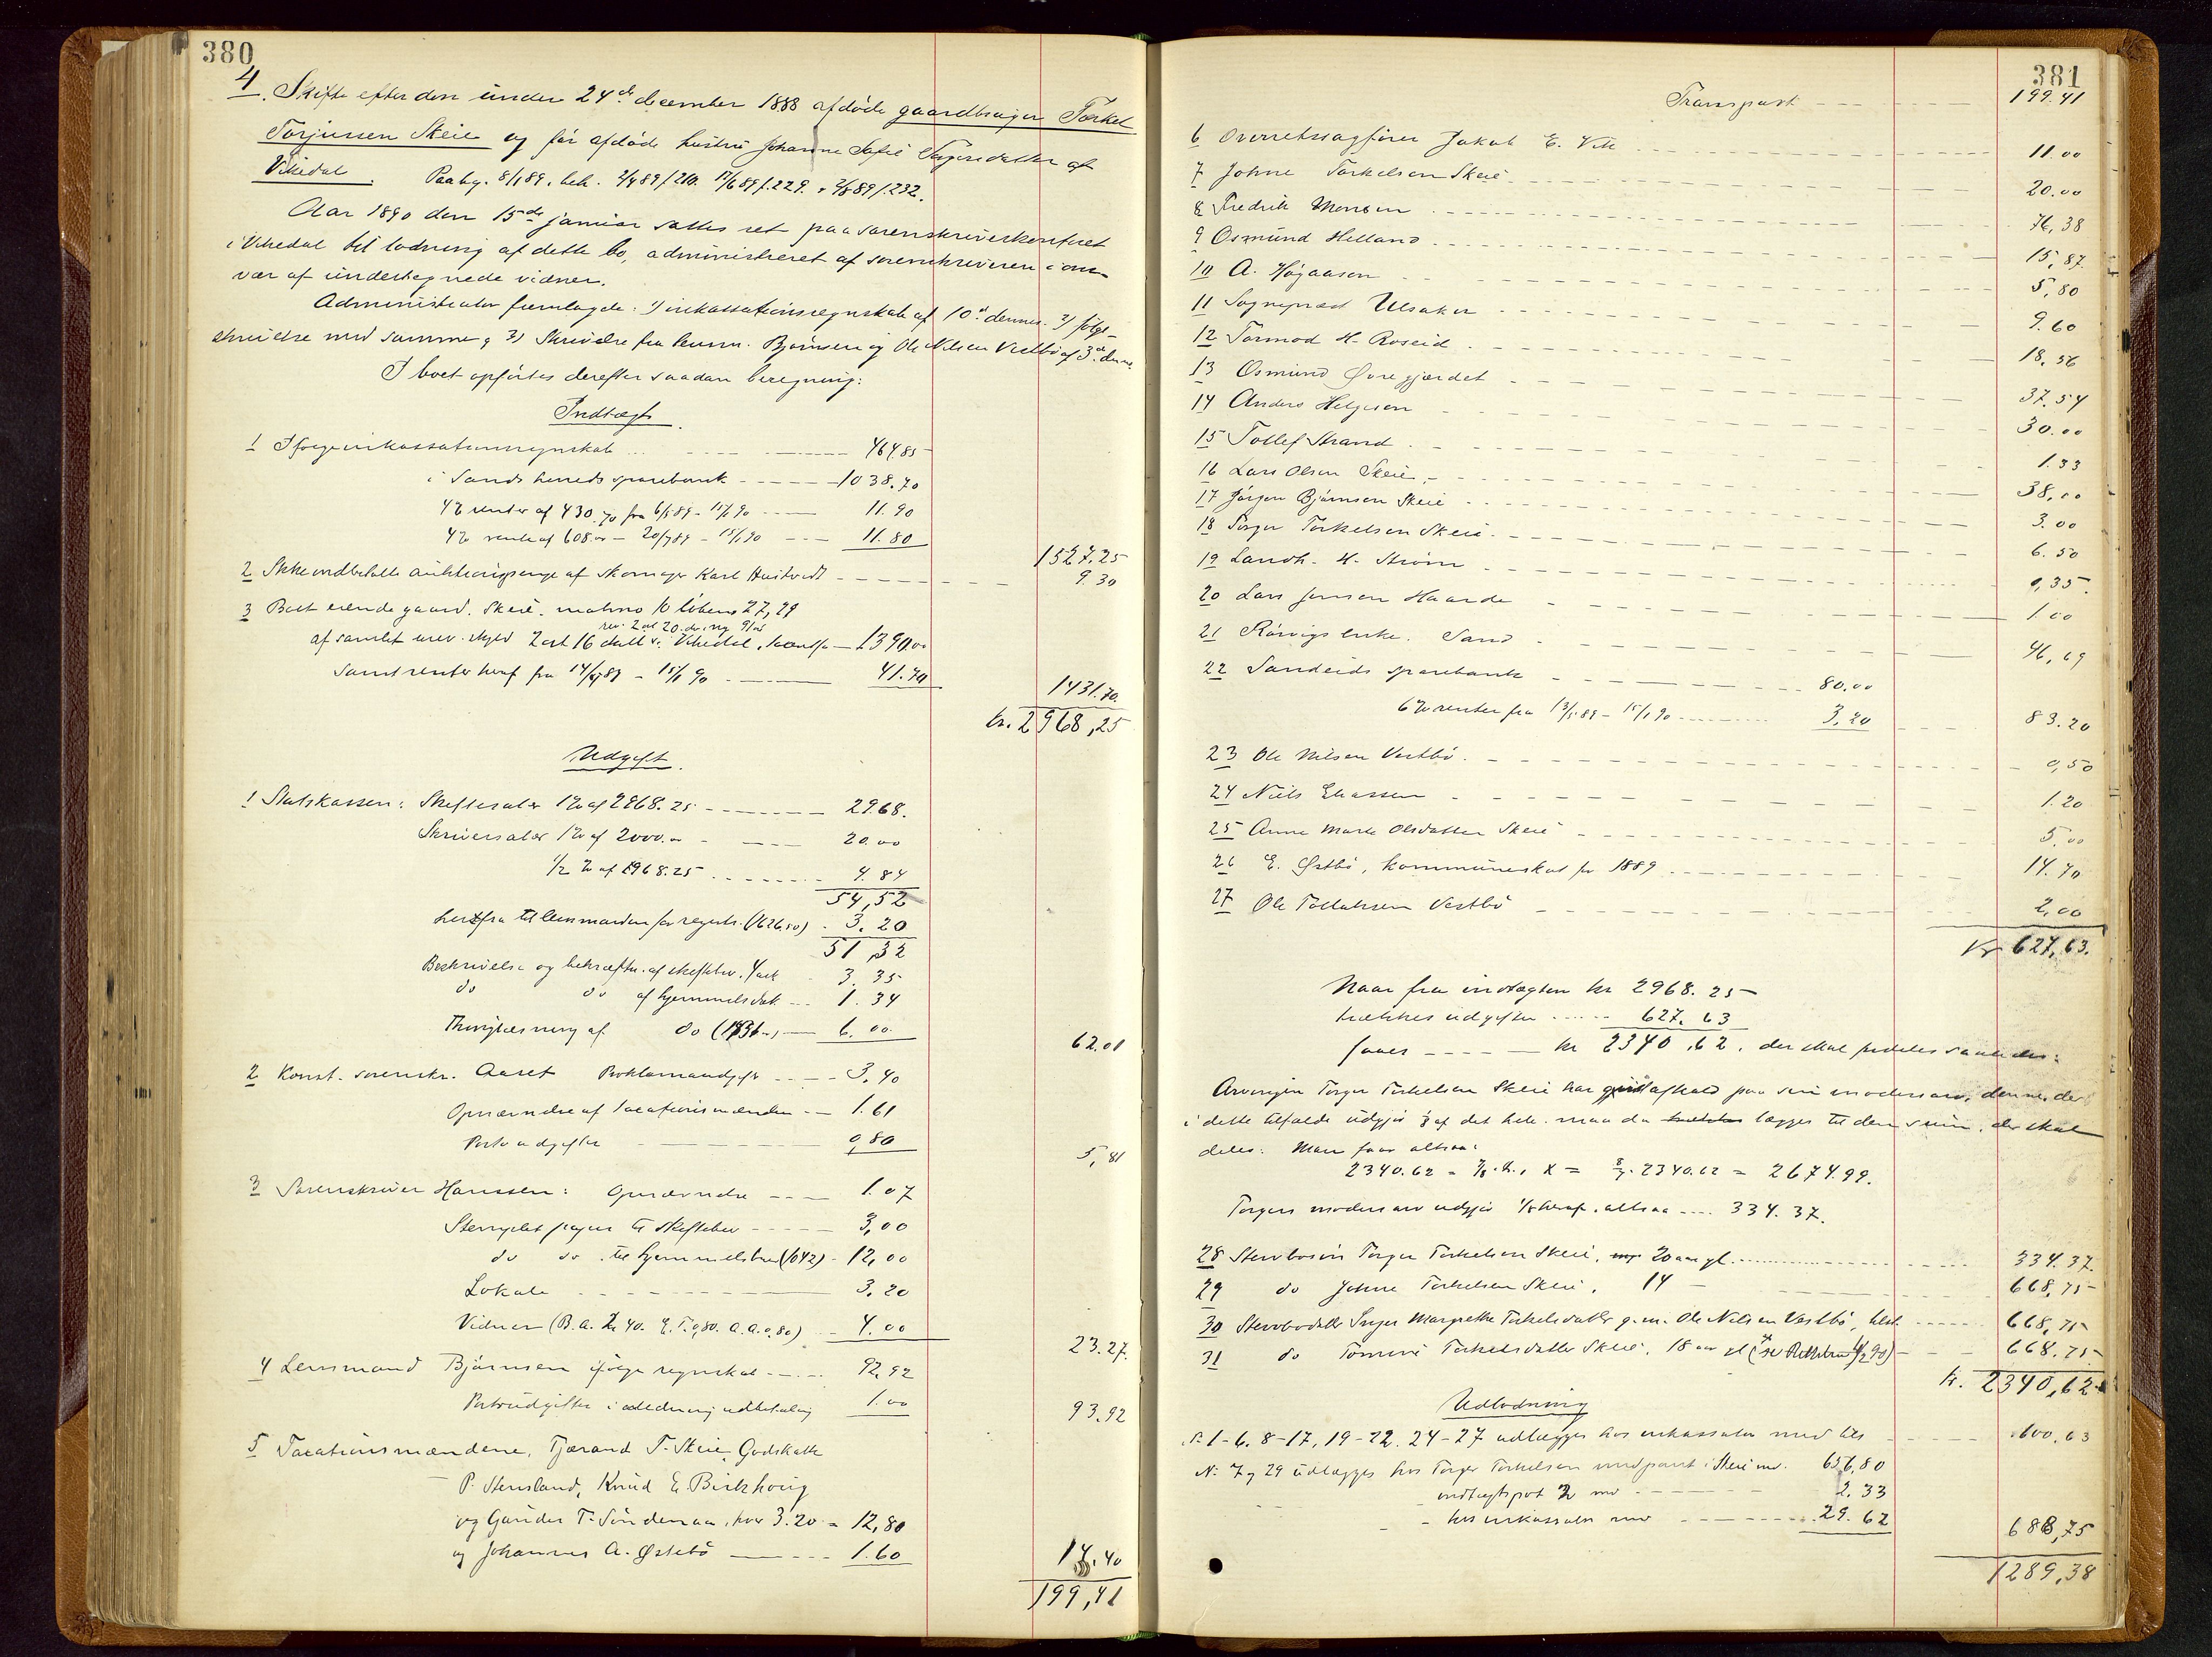 380
4. Skifte efter den under 24de december 1888 afdøde gaardbruger Torkel
Torjussen Skeie og før afdøde hustru Johanne Sofie Torgersdatter af
Vikedal. Paabeg. 8/1 89, beh. 2/4 89 f. 210. 17/6 89 f. 229. 2/8 89 f. 232.
Aar 1890 den 15de januar sattes ret paa sorenskriverkontoret
i Vikedal til lodning af dette bo, administreret af sorenskriveren i over-
vær af undertegnede vidner.
Administrator fremlagde: 1) inkassationsregnskab af 10de dennes. 2) følge-
skrivelse med samme, 3) Skrivelse fra lensm. Bjørnsen og Ole Nilsen Vestbø af 3de dennes.
I boet opførtes derefter saadan beregning:
Indtægt.
1 Ifølge inkassationsregnskab 464.85
i Sands herreds sparebank 1038.70
4% renter af 430.70 fra 6/5 89 - 15/1 90 11.90
4% rente af 608.00 - 20/7 89 - 15/1 90 11.80
1527.25
2 Ikke indbetalte auktionspenge af skomager Karl Hustvedt 9.30
3 Boet eiende gaard. Skeie. matrno 10 løbeno 27, 29
rev. 2 ort 20.
af samlet urev. skyld 2 ort 16 skill i Vikedal, taxert for 1390.00
Samt renter heraf fra 14/4 89 - 15/1 90 41.70
1431.70.
kr. 2968,25
Udgift.
1 Statskassen: Skiftesalær 1% af 2968.25 29.68.
Skriversalær 1% af 2000.00 20.00
1/2 % af 1968.25 4.84
54,52
herfra til lensmanden for registr. (1626.50) 3.20
51,32
Beskrivelse og bekræftn. af skiftebrev. 4 ark 3.35
do do af hjemmelsdok. 1.34
Thinglæsning af do 6.00
62.01
2 Konst. sorenskr. Aaset Proklamaudgift 3.40
Opnævnelse af taxationsmænden 1.61
Portoudgifter 0,80
5,81
3 Sorenskriver Hanssen: Opnævnelse 1.07
Stemplet papir til skiftebrev 3,00
do do til hjemmelsbrev (1042) 12,00
Lokale 3.20
Vidner (B.A. 2,40. E.T. 0,80. A.A. 0,80) 4.00
23.27.
4 Lensmand Bjørnsen ifølge regnskab 92,92
Portoudgifter i anledning udbetaling 1.00
93.92
5 Taxationsmændene, Tjærand T. Skeie, Godskalk
P. Stensland, Knud E. Birkhoug
og Gunder T. Søndenaa, hver 3.20 = 12,80
og Johannes A. Østebø 1.60
14.40
199,41
381
Transport 199.41
6 Overretssagfører Jakob E. Vik 11.00
7 Johne Torkelsen Skeie 20.00
8 Fredrik Monsen 76,38
9 Osmund Helland 15,87.
10 A. Høgaasen 5,80
11 Sogneprest Ulsaker 9.60
12 Tormod H. Roseid 18.56
13 Osmund Øvregjærdet 37.54
14 Anders Helgesen 30.00
15 Tollef Strand 1.33
16 Lars Olsen Skeie 38,00
17 Jørgen Bjørnsen Skeie 3.00
18 Torger Torkelsen Skeie 6.50
19 Landh. H. Strøm 0,35
20 Lars Jensen Haarde 1.00
21 Rørvigs enke. Sand 46,69
22 Sandeids sparebank 80.00
6% renter fra 13/5 89 - 15/1 90 3.20
83.20
23 Ole Nilsen Vestbø 0,50
24 Niels Eliassen 1.20
25 Anne Marte Olsdatter Skeie 5.00
26 E. Østbø, kommuneskat for 1889 14.70
27 Ole Tollaksen Vestbø 2,00
Kr 627,63.
Naar fra indtægten kr 2968.25
trækkes udgifter 627.63
faaes kr 2340.62, der skal fordeles saaledes:
Arvingen Torger Torkelsen Skeie har givet afkald paa sin modersarv, denne, der
i dette tilfælde udgjør 1/8 af det hele. maa da lægges til den sum, der skal
deles. Man faar altsaa:
2340.62 = 7/8 x, x = 8/7 · 2340.62 = 2674.99.
Torgers modersarv udgjør 1/8 heraf, altsaa 334.37.
28 Stervbosøn Torger Torkelsen Skeie, 20 aar gl. 334.37.
29 do Johne Torkelsen Skeie, 14 - 668,75
30 Stervbodatter Inger Margrethe Torkelsdatter g.m. Ole Nilsen Vestbø, 668,75
31 do Tomine Torkelsdatter Skeie, 18 aar gl 668.75
kr. 2340,62
Udlodning
No 1-6. 8-17, 19-22. 24-27 udlægges hos inkassator med tils 600.63
No 7 og 29 udlægges hos Torger Torkelsen med pant i Skeie med 656,80
- indtægtspost 2 med 2.33
- hos inkassator med 29.62
688,75
1289,38